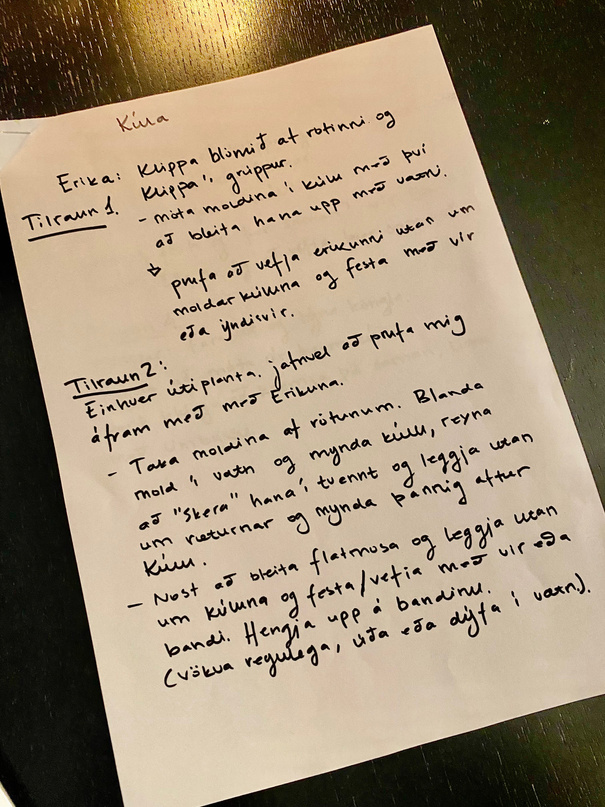 Kúla
Erika: Klippa blómið af rótinni og
Tilraun 1. Klippa í grúppur.
- móta moldina í kúlu með því
að bleita hana upp með vatni.
↳ prufa að vefja erikunni utan um
moldarkúluna og festa með vír
eða yndisvír.
Tilraun 2:
Einhver útiplanta. jafnvel að prufa mig
áfram með með Erikuna.
- Taka moldina af rótunum. Blanda
mold í vatn og mynda kúlu, reyna
að "skera" hana í tvennt og leggja utan
um ræturnar og mynda þannig aftur
kúlu.
- Næst að bleita flatmosa og leggja utan
um kúluna og festa/vefja með vír eða
bandi. Hengja upp á bandinu.
(vökva regulega, úða eða dýfa í vatn).